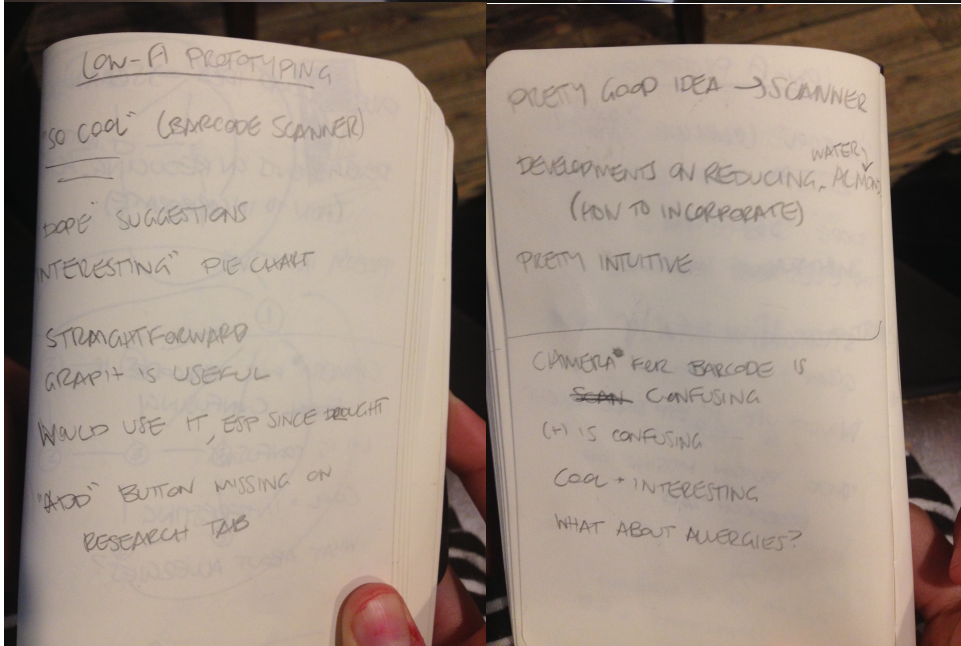 LOW-FI PROTOTYPING
"SO COOL" (BARCODE SCANNER)
DOPE" SUGGESTIONS
INTERESTING" PIE CHART
STRAIGHTFORWARD
GRAPH IS USEFUL
WOULD USE IT, ESP SINCE DROUGHT
"ADD" BUTTON MISSING ON
RESEARCH TAB
PRETTY GOOD IDEA → SCANNER
WATER
DEVELOPMENTS ON REDUCING ALMOND
(HOW TO INCORPORATE)
PRETTY INTUITIVE
CAMERA FOR BARCODE IS
SCAN CONFUSING
(+) IS CONFUSING
COOL + INTERESTING
WHAT ABOUT ALLERGIES?